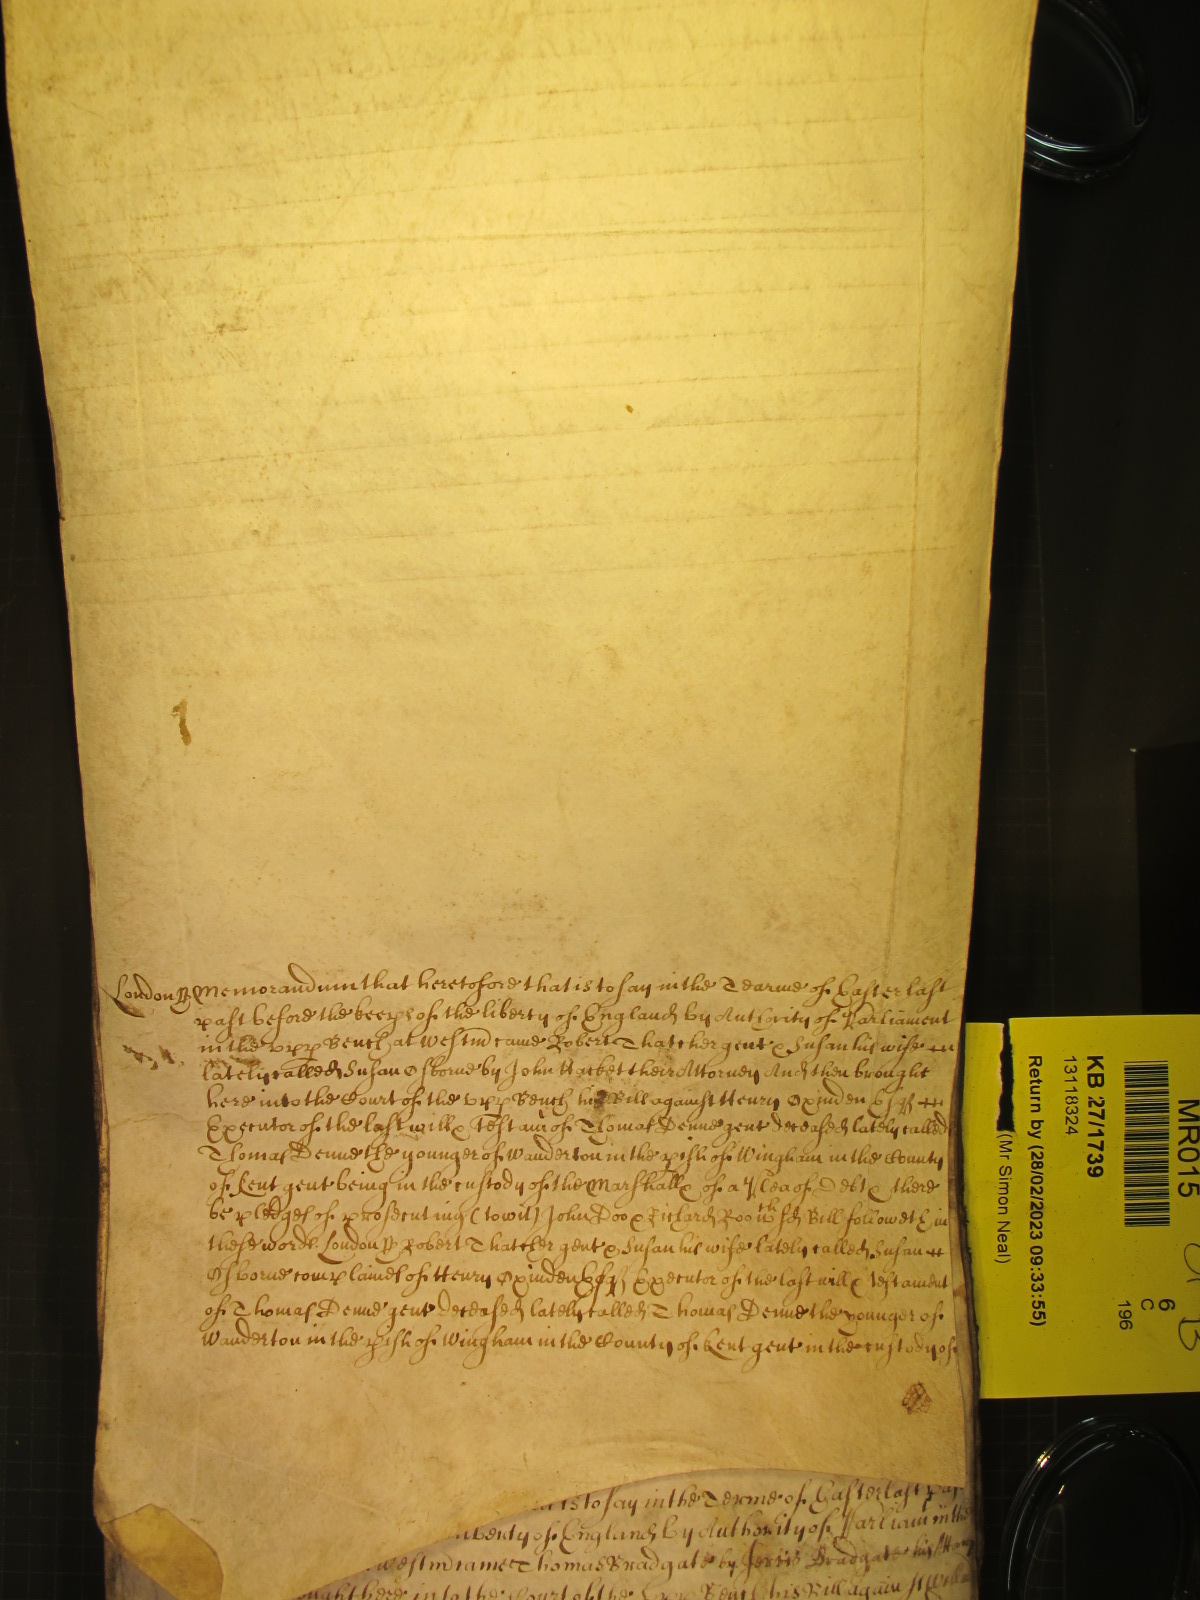 London ss Memorandum that heretofore that is to say in the Tearme of Easter last
past before the keeps of the liberty of England by Authority of Parliament
in the vpp Bench at Westm came Robert Thatcher gent & Susan his wife
lately called Susan Osborne by John Hacket their Attorney And then brought
here into the Court of the vpp Bench his Bill against Henry Oxinden Esq
Executor of the last will & Testam of Thomas Denne gent deceased lately called
Thomas Denne the younger of Wanderton in the pish of Wingham in the County
of Kent gent being in the custody of the Marshall & of a Plea of Debt & there
be pledges of prosecuting (to wit) John Doo & Richard Roo wch sd Bill followeth in
these words London ss Robert Thatcher gent & Susan his wife lately called Susan
Osborne complaines of Henry Oxinden Esq Executor of the last will & testament
of Thomas Denne gent deceased lately called Thomas Denne the younger of
Wanderton in the pish of Wingham in the County of Kent gent in the custody of
is to say in the Terme of Easter last past
liberty of England by Authority of Parliam in the
Westm came Thomas Bradgate by Jervis Bradgate his Attorny
brought here into the Court of the vpp Bench his Bill against
MR015
6
C
196
KB 27/1739
13118324
Return by (28/02/2023 09:33:55)
(Mr Simon Neal)